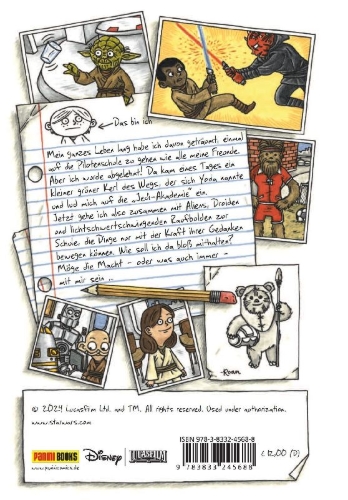 Das bin ich
Mein ganzes Leben lang habe ich davon geträumt, einmal
auf die Pilotenschule zu gehen wie alle meine Freunde.
Aber ich wurde abgelehnt! Da kam eines Tages ein
kleiner grüner Kerl des Wegs, der sich Yoda nannte
und lud mich auf die „Jedi-Akademie" ein.
Jetzt gehe ich also zusammen mit Aliens, Droiden
und lichtschwertschwingenden Raufbolden zur
Schule, die Dinge nur mit der Kraft ihrer Gedanken
bewegen können. Wie soll ich da bloß mithalten?
Möge die Macht – oder was auch immer –
mit mir sein ...
-Roan
© 2024 Lucasfilm Ltd. and TM. All rights reserved. Used under authorization.
www.starwars.com
PANINI BOOKS
www.paninicomics.de
Disney
LUCASFILM
ISBN 978-3-8332-4568-8
9 783833 245688
€ 12,00 (D)